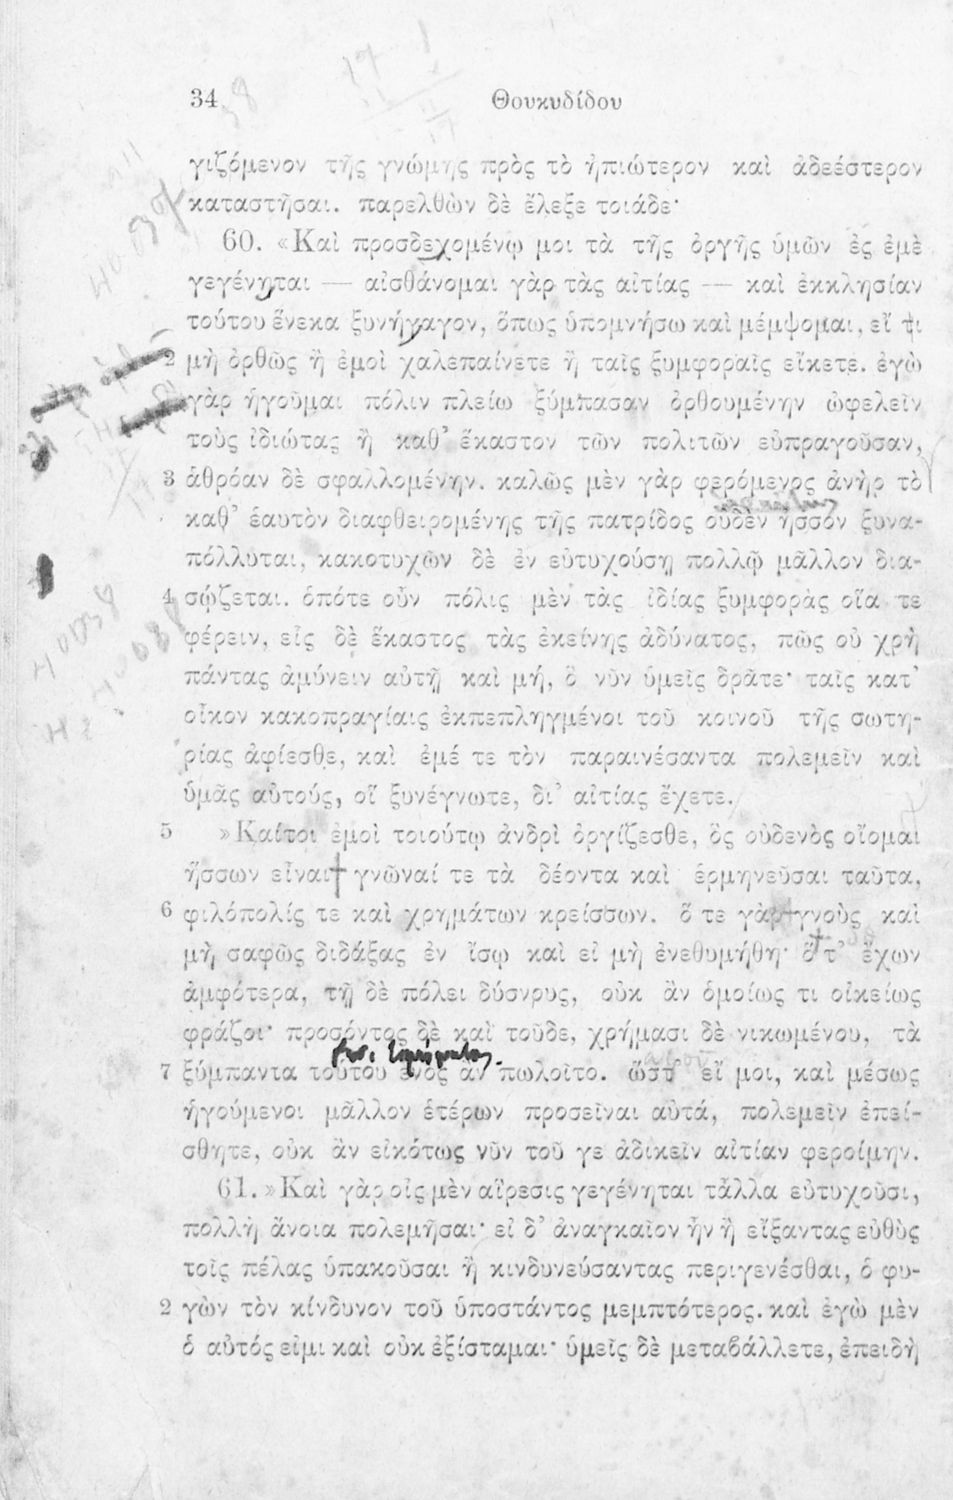 34 Θουκυδίδου
γιζόμενον τῆς γνώμης πρὸς τὸ ἠπιώτερον καὶ ἀδεέστερον
καταστῆσαι. παρελθὼν δὲ ἔλεξε τοιάδε·
60. «Καὶ προσδεχομένῳ μοι τὰ τῆς ὀργῆς ὑμῶν ἐς ἐμὲ
γεγένηται — αἰσθάνομαι γὰρ τὰς αἰτίας — καὶ ἐκκλησίαν
τούτου ἕνεκα ξυνήγαγον, ὅπως ὑπομνήσω καὶ μέμψομαι, εἴ τι
2 μὴ ὀρθῶς ἢ ἐμοὶ χαλεπαίνετε ἢ ταῖς ξυμφοραῖς εἴκετε. ἐγὼ
γὰρ ἡγοῦμαι πόλιν πλείω ξύμπασαν ὀρθουμένην ὠφελεῖν
τοὺς ἰδιώτας ἢ καθ' ἕκαστον τῶν πολιτῶν εὐπραγοῦσαν,
3 ἁθρόαν δὲ σφαλλομένην. καλῶς μὲν γὰρ φερόμενος ἀνὴρ τὸ
καθ' ἑαυτὸν διαφθειρομένης τῆς πατρίδος οὐδὲν ἧσσον ξυνα-
πόλλυται, κακοτυχῶν δὲ ἐν εὐτυχούσῃ πολλῷ μᾶλλον δια-
4 σῴζεται. ὁπότε οὖν πόλις μὲν τὰς ἰδίας ξυμφορὰς οἵα τε
φέρειν, εἷς δὲ ἕκαστος τὰς ἐκείνης ἀδύνατος, πῶς οὐ χρὴ
πάντας ἀμύνειν αὐτῇ καὶ μή, ὃ νῦν ὑμεῖς δρᾶτε· ταῖς κατ'
οἶκον κακοπραγίαις ἐκπεπληγμένοι τοῦ κοινοῦ τῆς σωτη-
ρίας ἀφίεσθε, καὶ ἐμέ τε τὸν παραινέσαντα πολεμεῖν καὶ
ὑμᾶς αὐτούς, οἳ ξυνέγνωτε, δι' αἰτίας ἔχετε.
5 »Καίτοι ἐμοὶ τοιούτῳ ἀνδρὶ ὀργίζεσθε, ὃς οὐδενὸς οἴομαι
ἥσσων εἶναι γνῶναί τε τὰ δέοντα καὶ ἑρμηνεῦσαι ταῦτα,
6 φιλόπολίς τε καὶ χρημάτων κρείσσων. ὅ τε γὰρ γνοὺς καὶ
μὴ σαφῶς διδάξας ἐν ἴσῳ καὶ εἰ μὴ ἐνεθυμήθη· ὅ τ' ἔχων
ἀμφότερα, τῇ δὲ πόλει δύσνους, οὐκ ἂν ὁμοίως τι οἰκείως
φράζοι· προσόντος δὲ καὶ τοῦδε, χρήμασι δὲ νικωμένου, τὰ
7 ξύμπαντα τούτου ἑνὸς ἂν πωλοῖτο. ὥστ' εἴ μοι, καὶ μέσως
ἡγούμενοι μᾶλλον ἑτέρων προσεῖναι αὐτά, πολεμεῖν ἐπεί-
σθητε, οὐκ ἂν εἰκότως νῦν τοῦ γε ἀδικεῖν αἰτίαν φεροίμην.
61. »Καὶ γὰρ οἷς μὲν αἵρεσις γεγένηται τἆλλα εὐτυχοῦσι,
πολλὴ ἄνοια πολεμῆσαι· εἰ δ' ἀναγκαῖον ἦν ἢ εἴξαντας εὐθὺς
τοῖς πέλας ὑπακοῦσαι ἢ κινδυνεύσαντας περιγενέσθαι, ὁ φυ-
2 γὼν τὸν κίνδυνον τοῦ ὑποστάντος μεμπτότερος. καὶ ἐγὼ μὲν
ὁ αὐτός εἰμι καὶ οὐκ ἐξίσταμαι· ὑμεῖς δὲ μεταβάλλετε, ἐπειδὴ